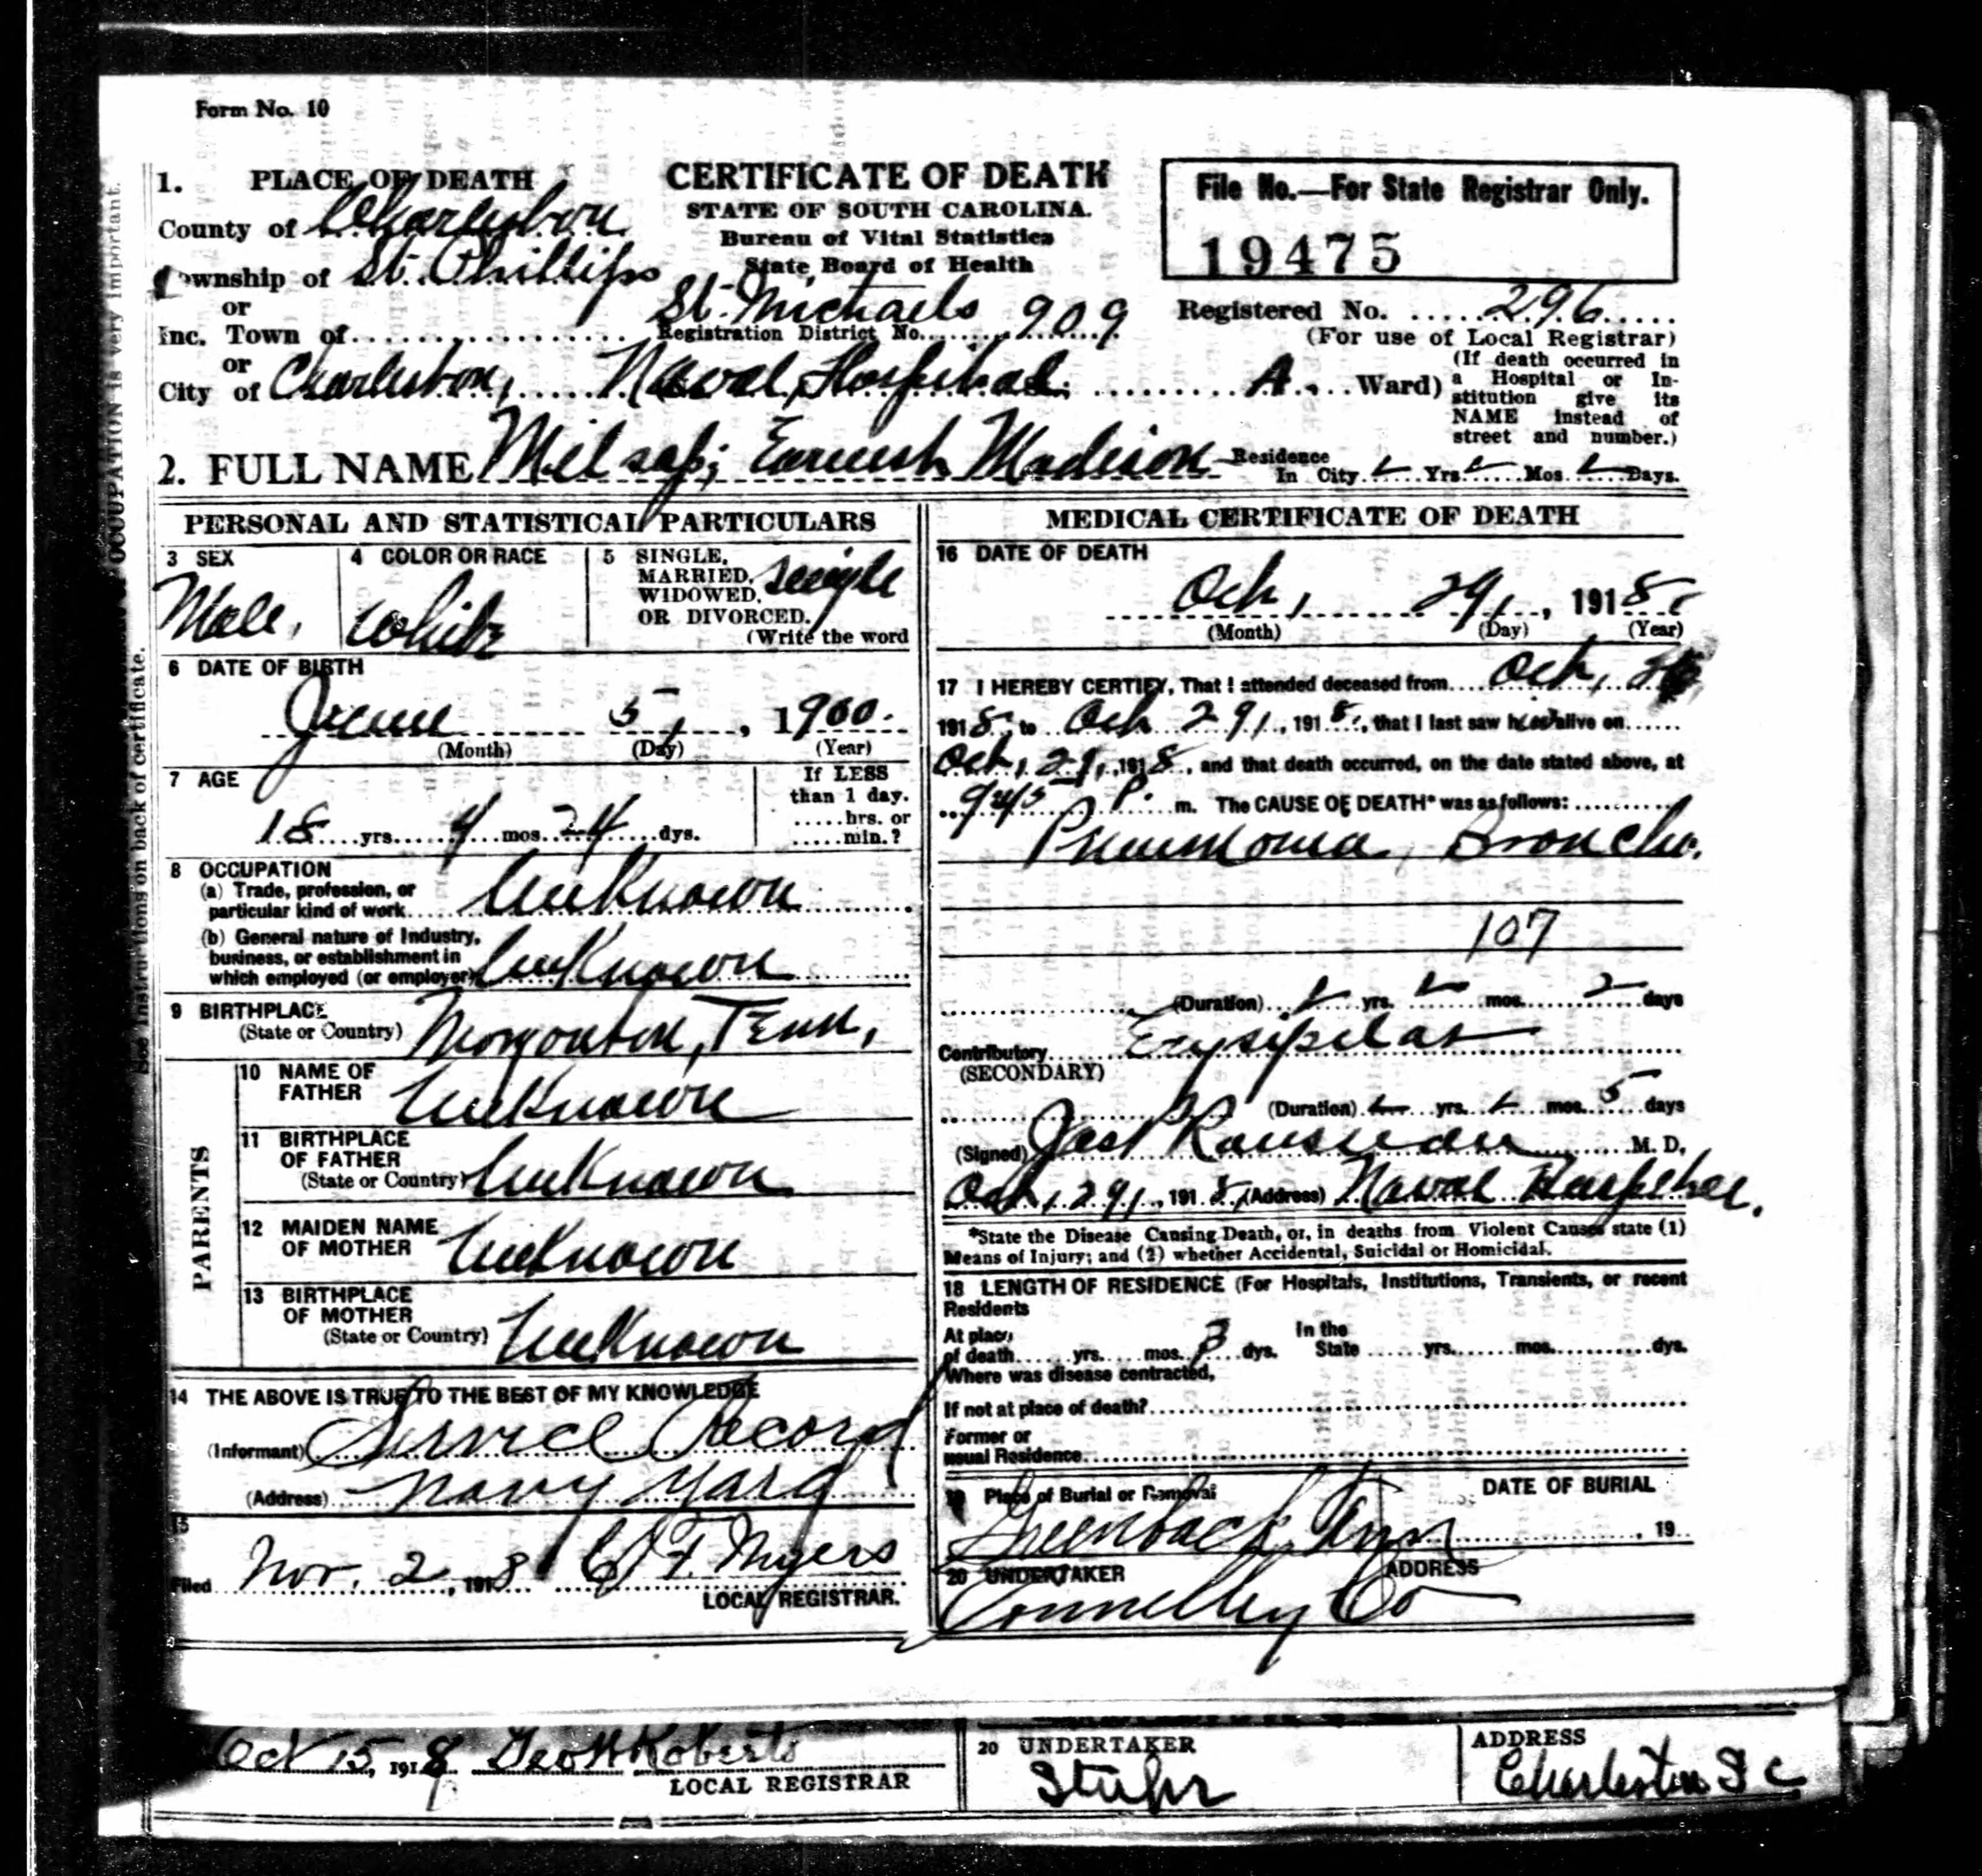 Form No. 10
1. PLACE OF DEATH
County of Charleston
Township of St. Phillips
St. Michaels
or
Inc. Town of
or
City of Charleston, Naval Hospital
CERTIFICATE OF DEATH
STATE OF SOUTH CAROLINA.
Bureau of Vital Statistics
State Board of Health
Registration District No. 909
File No.—For State Registrar Only.
19475
Registered No. 296
(For use of Local Registrar)
A. Ward)
(If death occurred in
a Hospital or In-
stitution give its
NAME instead of
street and number.)
2. FULL NAME Milsap, Earnest Madison
Residence
In City Yrs. Mos. Days.
PERSONAL AND STATISTICAL PARTICULARS
3 SEX
Male,
4 COLOR OR RACE
White
5 SINGLE,
MARRIED,
WIDOWED,
OR DIVORCED.
(Write the word
single
6 DATE OF BIRTH
June 5, 1900.
(Month) (Day) (Year)
7 AGE
18 yrs. 4 mos. 24 dys.
If LESS
than 1 day.
hrs. or
min.?
8 OCCUPATION
(a) Trade, profession, or
particular kind of work Unknown
(b) General nature of Industry,
business, or establishment in
which employed (or employer) Unknown
9 BIRTHPLACE
(State or Country) Morganton, Tenn,
PARENTS
10 NAME OF
FATHER Unknown
11 BIRTHPLACE
OF FATHER
(State or Country) Unknown
12 MAIDEN NAME
OF MOTHER Unknown
13 BIRTHPLACE
OF MOTHER
(State or Country) Unknown
14 THE ABOVE IS TRUE TO THE BEST OF MY KNOWLEDGE
(Informant) Service Record
(Address) Navy Yard
15
Filed Nov. 2, 1918 F. Myers
LOCAL REGISTRAR.
MEDICAL CERTIFICATE OF DEATH
16 DATE OF DEATH
Oct, 29, 1918
(Month) (Day) (Year)
17 I HEREBY CERTIFY, That I attended deceased from Oct,
1918, to Oct 29, 1918, that I last saw him alive on
Oct, 29, 1918, and that death occurred, on the date stated above, at
945 P. m. The CAUSE OF DEATH* was as follows:
Pneumonia, Broncho.
107
(Duration) yrs. mos. 2 days
Contributory Erysipelas
(SECONDARY)
(Duration) yrs. mos. 5 days
(Signed) Rousseau M. D.
Oct, 29, 1918, (Address) Naval Hospital.
*State the Disease Causing Death, or, in deaths from Violent Causes state (1)
Means of Injury; and (2) whether Accidental, Suicidal or Homicidal.
18 LENGTH OF RESIDENCE (For Hospitals, Institutions, Transients, or recent
Residents
At place
of death yrs. mos. 3 dys. In the State yrs. mos. dys.
Where was disease contracted,
If not at place of death?
Former or
usual Residence
19 Place of Burial or Removal DATE OF BURIAL
Greenback, Tenn , 19
20 UNDERTAKER ADDRESS
Connelley Co
See instructions on back of certificate. OCCUPATION is very important.
Oct 15, 1918 Geo H Roberts
LOCAL REGISTRAR
20 UNDERTAKER
Stuhr
ADDRESS
Charleston S C